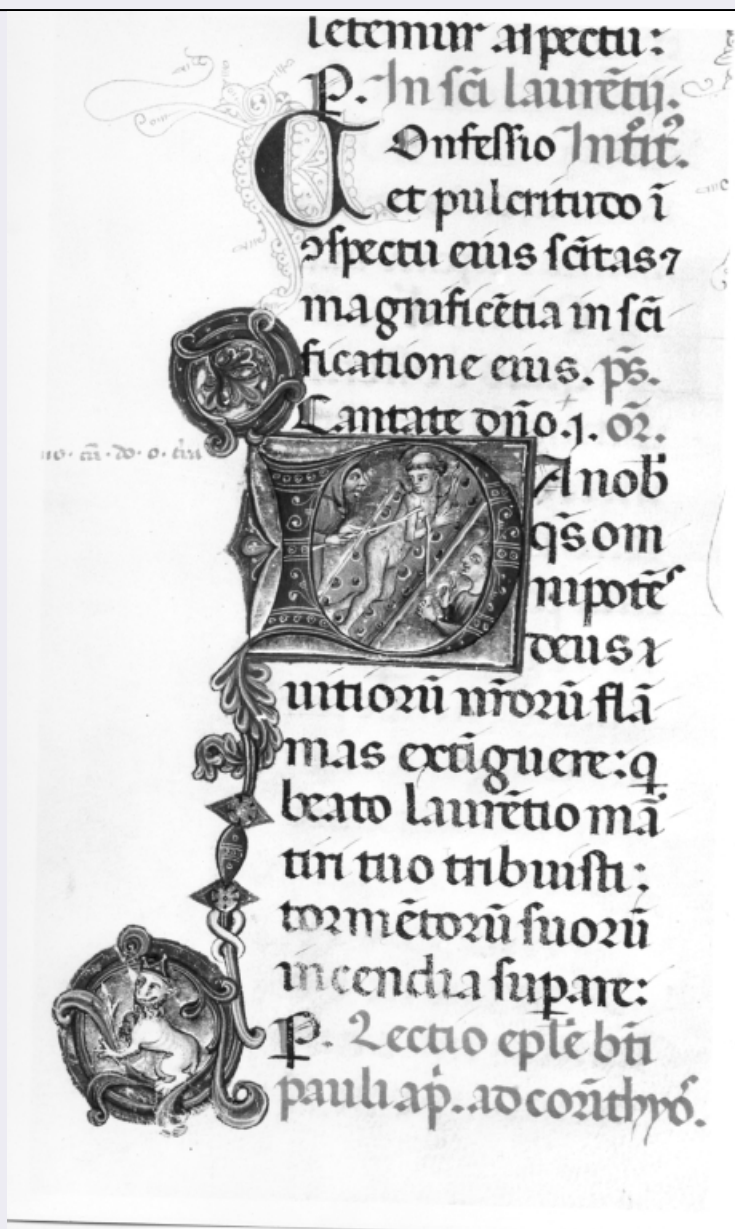 letemur aspectu:
P. In sc̄i laurētij.
COnfessio Introit᷒.
et pulcritudo ī
ꝯspectu eius sc̄itas ⁊
magnificētia in sc̄i
ficatione eius. p̄s.
Cantate dn̄o .1. or̄.
DA nob̄
q̄s om
nipotēs
deus ⁊
uitiorū nr̄orū flā
mas extīguere: q̄
beato laurētio mā
tiri tuo tribuisti:
tormētorū suorū
incendia suꝑare:
P. Lectio ep̄le bt̄i
pauli ap̄. ad corīthyos.